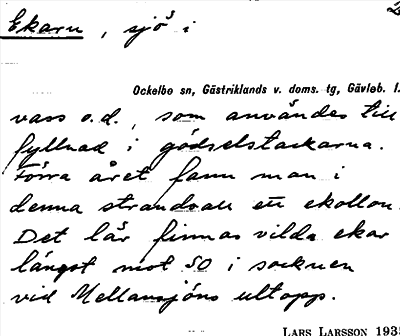 Ekaru, sjö³ i
Ockelbo sn, Gästriklands v. doms. tg, Gävleb. l.
vass o.d., som användes till
fyllnad i gödselstackarna.
Förra året fann man i
denna strandvall ett ekollon.
Det lär finnas vilda ekar
längst mot SO i socknen
vid Mellansjöns utlopp.
LARS LARSSON 193